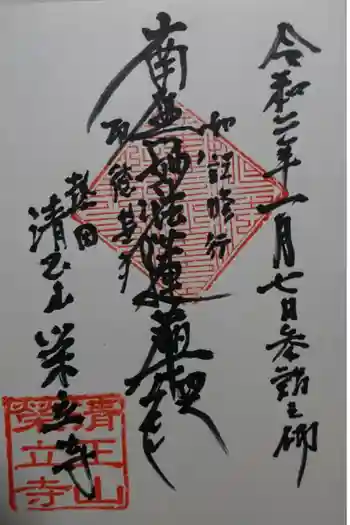 令和六年一月七日参詣之砌
如説修行
南無妙法蓮華経
功徳甚多
熱田
清正山 栄立寺
清正山
榮立寺